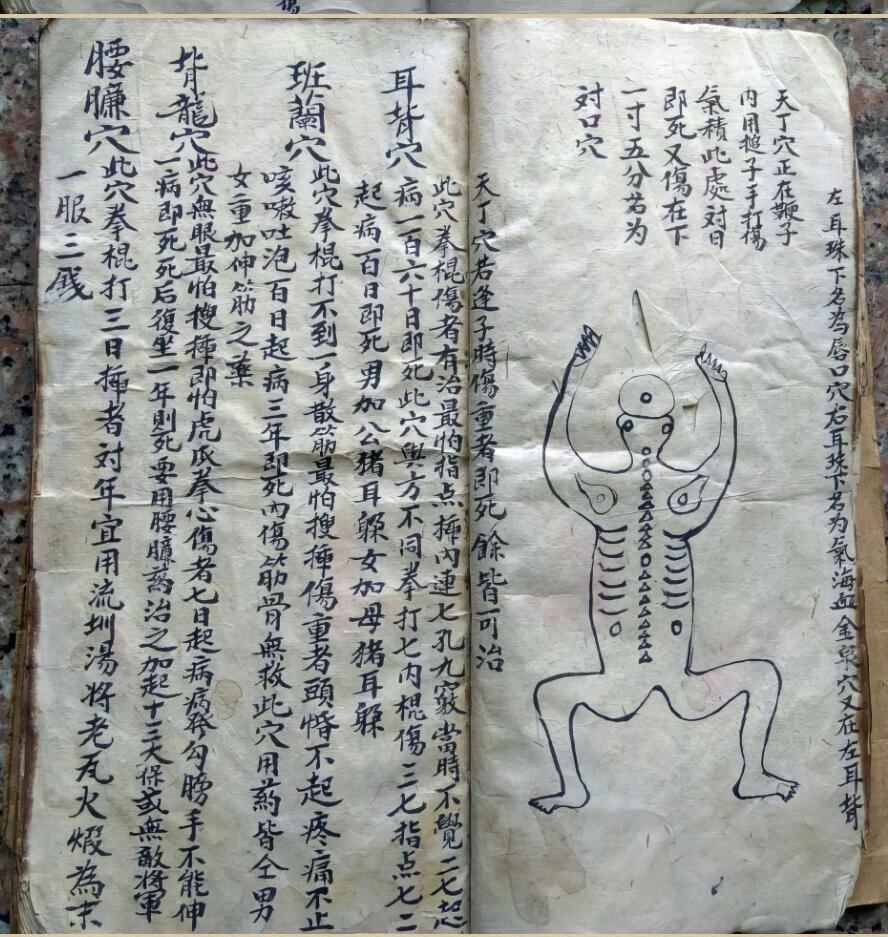 左耳珠下名為唇口穴右耳珠下名为氣海血金泉穴又在左耳背
天丁穴正在鞭子
内用搥子手打傷
氣積此處対日
即死又傷在下
一寸五分名为
対口穴
天丁穴若逢子時傷重者即死餘皆可治
耳背穴
此穴拳棍傷者有治最怕指点揷内連七孔九竅當時不覺二七起
病一百六十日即死此穴與方不同拳打七内棍傷三七指点七二
起病一百日即死男加公猪耳躲女加母猪耳躲
班蘭穴
此穴拳棍打不到一身散筋最怕搜揷傷重者頭惛不起疼痛不止
咳嗽吐泡百日起病三年即死内傷筋骨無救此穴用药皆仝男
女重加伸筋之藥
背龍穴
此穴無眼最怕搜揷即怕虎爪拳心傷者七日起病病發勾膀手不能伸
一病即死死后復坐一年則死要用腰臁药治之加起十三大保或無敵將軍
腰臁穴
此穴拳棍打三日揷者対年宜用流圳湯將老瓦火煆為末
一服三錢